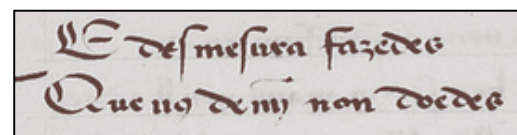 E desmesura fazedes
Que uos de mī non doedes